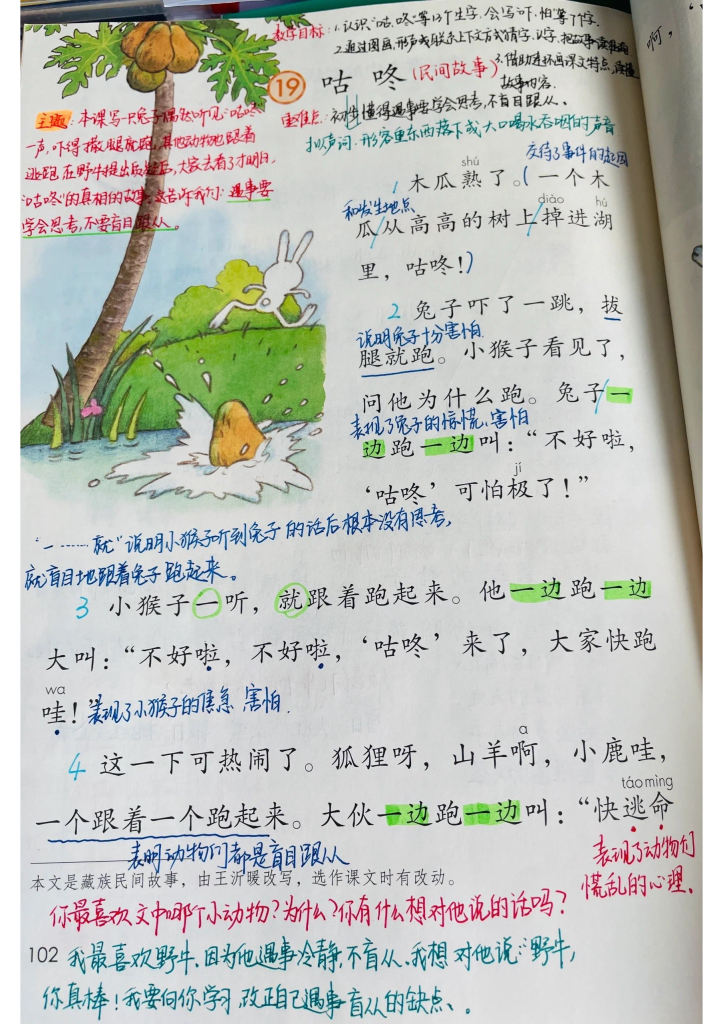 教学目标：1.认识“咕、咚”等13个生字，会写“吓、怕”等7个字。
2.通过图画、形声或联系上下文方式猜字、识字，把故事读
3.借助连环画课文特点，读懂
故事内容。
19 咕咚(民间故事)
重难点：初步懂得遇事要学会思考，不盲目跟从。
拟声词，形容重东西落下或大口喝水吞咽的声音
主题：本课写一只兔子偶然听见“咕咚”
一声，吓得撒腿就跑，其他动物也跟着
逃跑，在野牛提出后，大家去看了才明白
“咕咚”的真相的故事，这告诉我们：遇事要
学会思考，不要盲目跟从。
交待了事件的起因
和发生地点
shú
1 木瓜熟了。(一个木
diào hú
瓜从高高的树上掉进湖
里，咕咚！)
2 兔子吓了一跳，拔
说明兔子十分害怕
腿就跑。小猴子看见了，
问他为什么跑。兔子一
表现了兔子的惊慌、害怕
边跑一边叫：“不好啦，
jí
‘咕咚’可怕极了！”
“一……就”说明小猴子听到兔子的话后根本没有思考，
就盲目地跟着兔子跑起来。
3 小猴子一听，就跟着跑起来。他一边跑一边
大叫：“不好啦，不好啦，‘咕咚’来了，大家快跑
wa
哇！”表现了小猴子的焦急、害怕.
a
4 这一下可热闹了。狐狸呀，山羊啊，小鹿哇，
táo mìng
一个跟着一个跑起来。大伙一边跑一边叫：“快逃命
表明动物们都是盲目跟从
表现了动物们
慌乱的心理.
本文是藏族民间故事，由王沂暖改写，选作课文时有改动。
你最喜欢文中哪个小动物？为什么？你有什么想对他说的话吗？
102 我最喜欢野牛，因为他遇事冷静，不盲从、我想对他说：“野牛，
你真棒！我要向你学习，改正自己遇事盲从的缺点、。
啊，